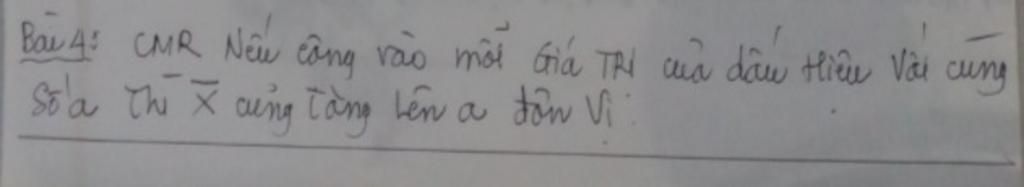 Bài 4: CMR Nếu cộng vào mỗi Giá TRị của dấu Hiệu Với cùng
Số a Thì X̄ cũng Tăng Lên a đơn Vị.